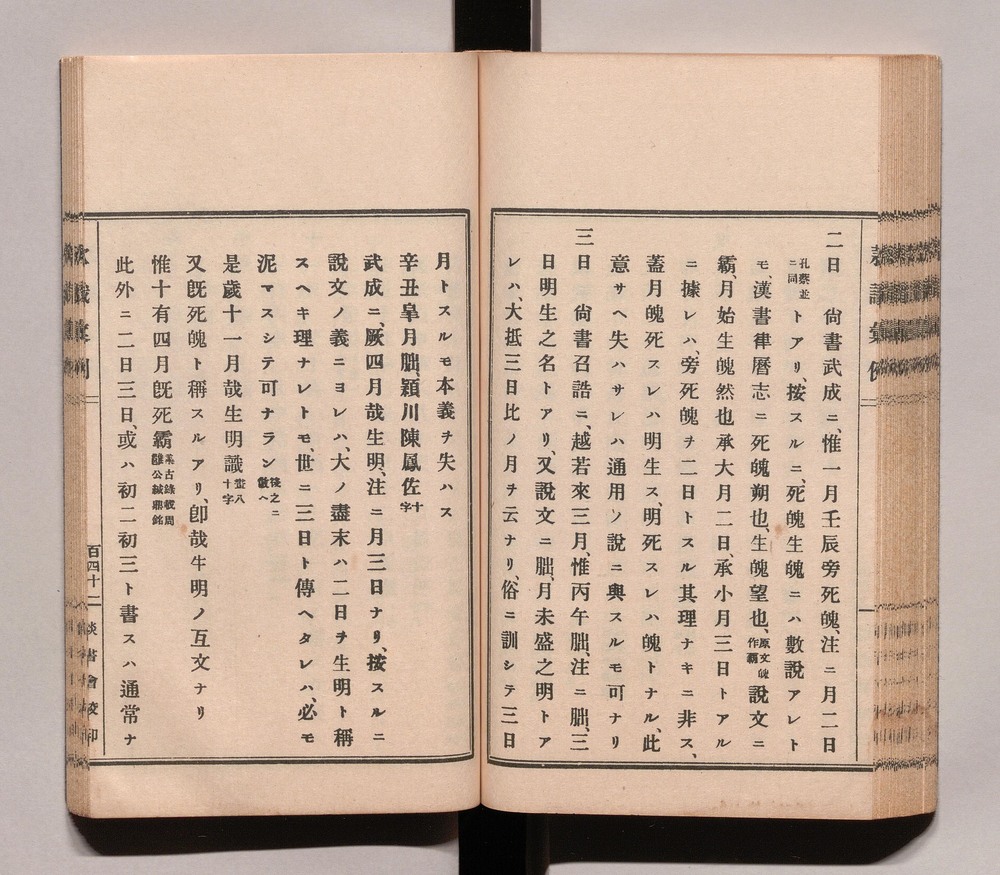 二日　尙書武成ニ、惟一月壬辰旁死魄、注ニ月二日
孔蔡並ニ同トアリ、按スルニ、死魄生魄ニハ數說アレト
モ、漢書律曆志ニ死魄朔也、生魄望也、原文魄作霸說文ニ
霸、月始生魄然也承大月二日、承小月三日トアル
ニ據レハ、旁死魄ヲ二日トスル其理ナキニ非ス、
蓋月魄死スレハ明生ス、明死スレハ魄トナル、此
意サヘ失ハサレハ通用ノ說ニ與スルモ可ナリ
三日　尙書召誥ニ、越若來三月、惟丙午朏、注ニ朏、三
日明生之名トアリ、又說文ニ朏、月未盛之明トア
レハ、大抵三日比ノ月ヲ云ナリ、俗ニ訓シテ三日
月トスルモ本義ヲ失ハス
辛丑皐月朏、穎川陳鳳佐十字
武成ニ、厥四月哉生明、注ニ月三日ナリ、按スルニ
說文ノ義ニヨレハ、大ノ盡末ハ二日ヲ生明ト稱
スヘキ理ナレトモ、世ニ三日ト傳ヘタレハ、必モ
泥マスシテ可ナラン後之ニ傚ヘ
是歲十一月哉生明識畫八十字
又旣死魄ト稱スルアリ、卽哉生明ノ互文ナリ
惟十有四月旣死霸集古錄載周公緘鼎銘
此外ニ二日三日、或ハ初二初三ト書スハ通常ナ
百四十二　談書會友印